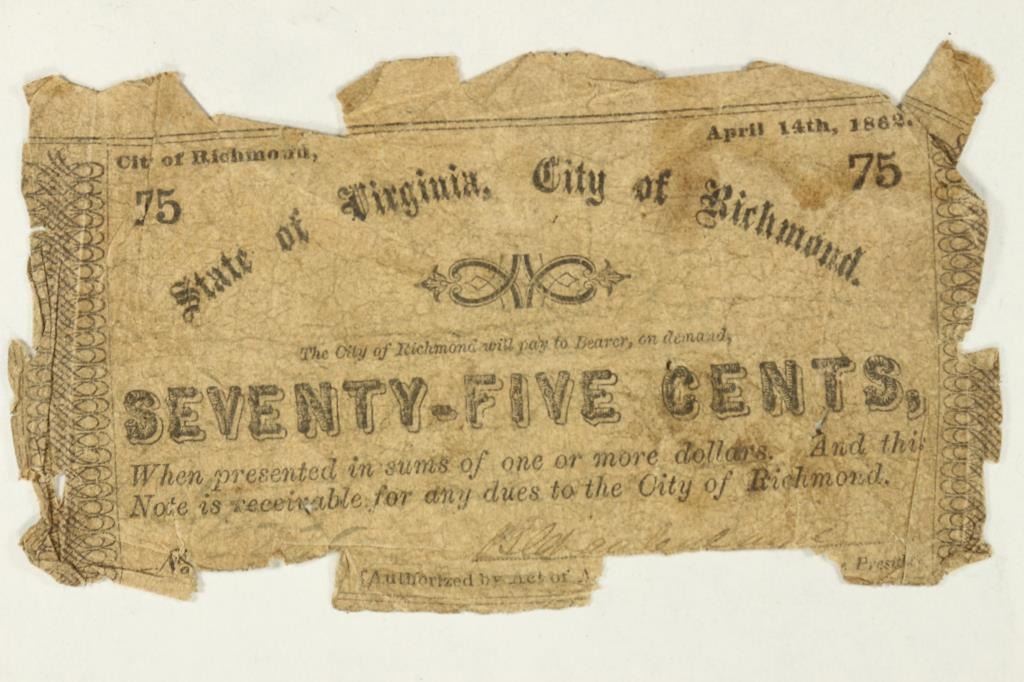 City of Richmond,
April 14th, 1862.
75
75
State of Virginia, City of Richmond.
The City of Richmond will pay to Bearer, on demand,
SEVENTY-FIVE CENTS,
When presented in sums of one or more dollars. And this
Note is receivable for any dues to the City of Richmond.
No
(Authorized by Act of A